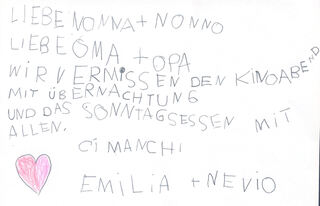 LIEBE NONNA + NONNO
LIEBE OMA + OPA
WIR VERMISSEN DEN KINOABEND
MIT ÜBERNACHTUNG
UND DAS SONNTAGSESSEN MIT
ALLEN.
CI MANCHI
EMILIA + NEVIO